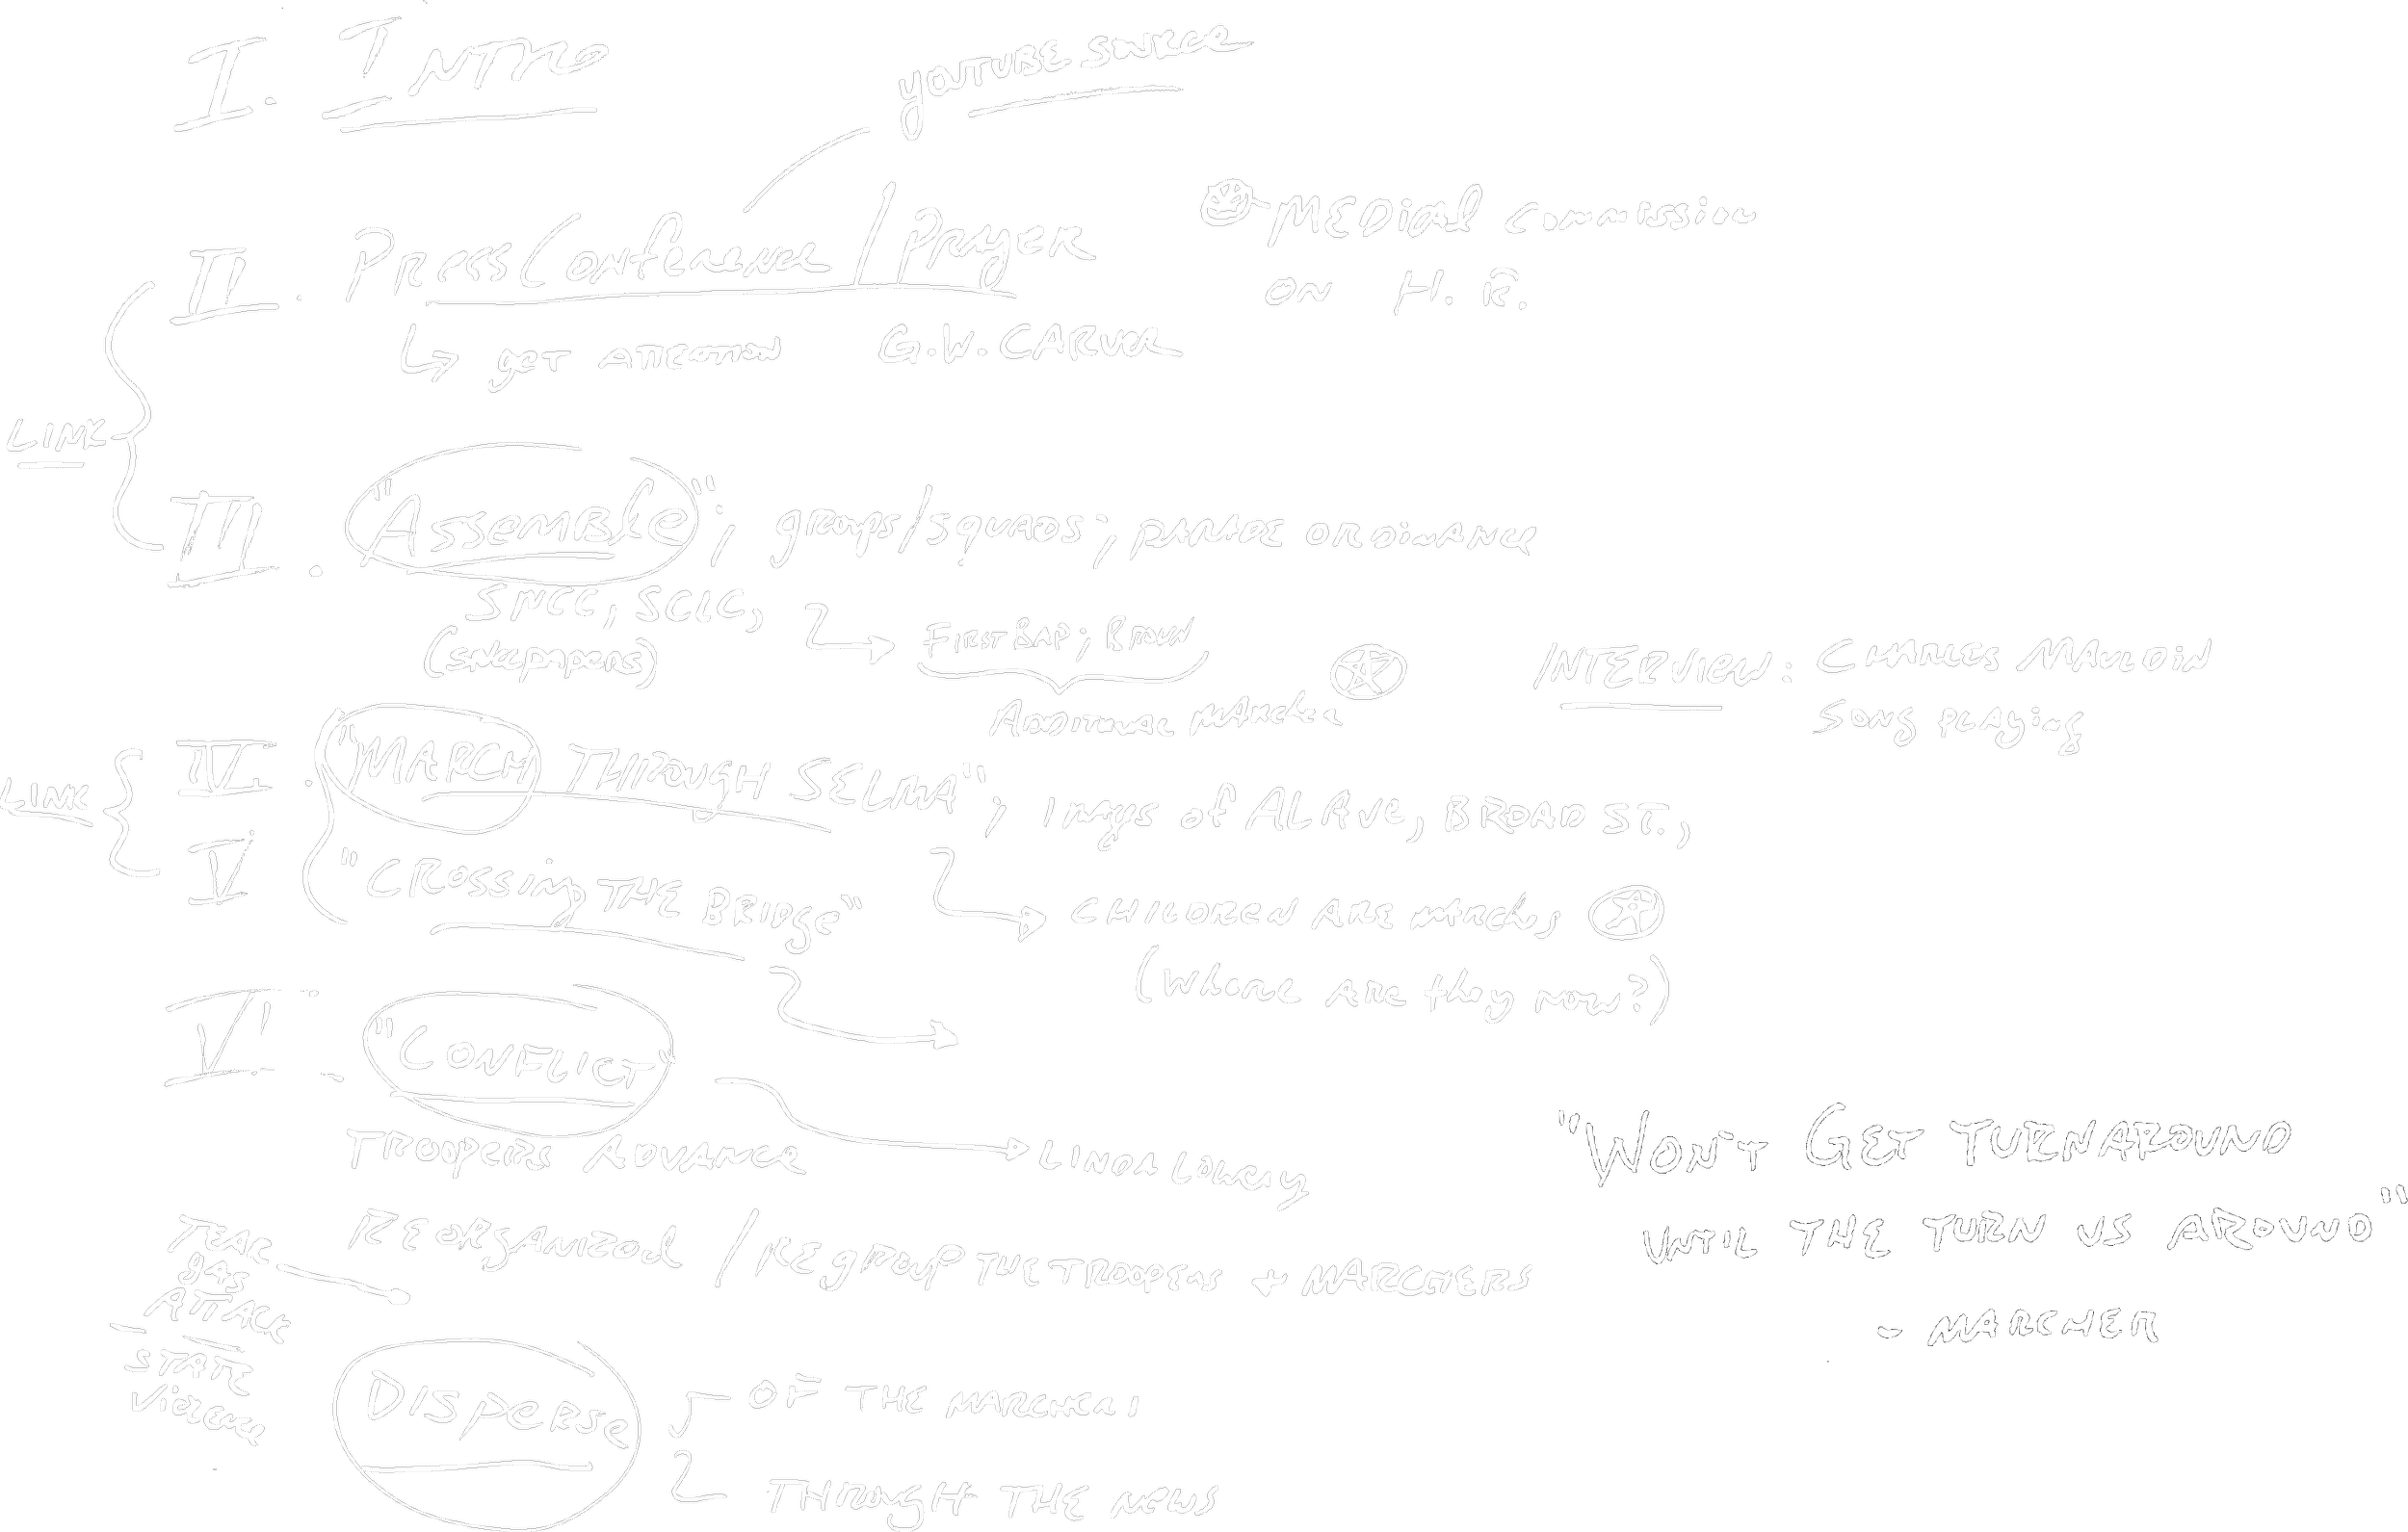 I. INTRO
YOUTUBE SOURCE
II. PRESS CONFERENCE / PRAYER
MEDICAL COMMISSION
ON H. R.
↳ get ATTENTION G.W. CARVER
LINK
III. "ASSEMBLE"; groups/squads; PARADE ORDINANCE
SNCC, SCLC,
FIRST BAP; BROWN
ADDITIONAL
INTERVIEW: CHARLES MAULDIN
SONG PLAYING
LINK
IV. "MARCH THROUGH SELMA"; Imgs of AL AVE, BROAD ST.,
V "CROSSING THE BRIDGE"
CHILDREN ARE
(Where ARE they now?)
VI. "CONFLICT"
TROOPERS ADVANCE
LINDA LOWERY
REORGANIZED / REGROUP THE TROOPERS + MARCHERS
TEAR
gAS
ATTACK
STATE
VIOLENCE
DISPERSE
OF THE MARCHERS
THROUGH THE NEWS
"WON'T GET TURNAROUND
UNTIL THE TURN US AROUND"
- MARCHER